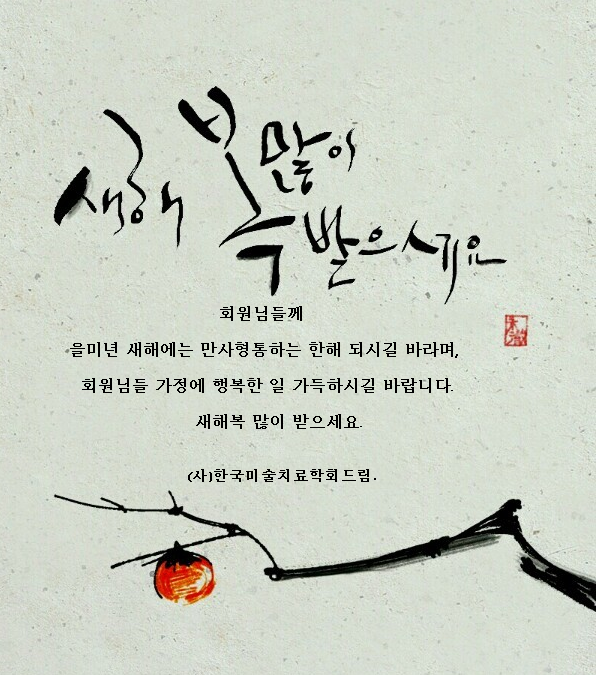 새해 복 많이 받으세요
회원님들께
을미년 새해에는 만사형통하는 한해 되시길 바라며,
회원님들 가정에 행복한 일 가득하시길 바랍니다.
새해복 많이 받으세요.
(사)한국미술치료학회드림.